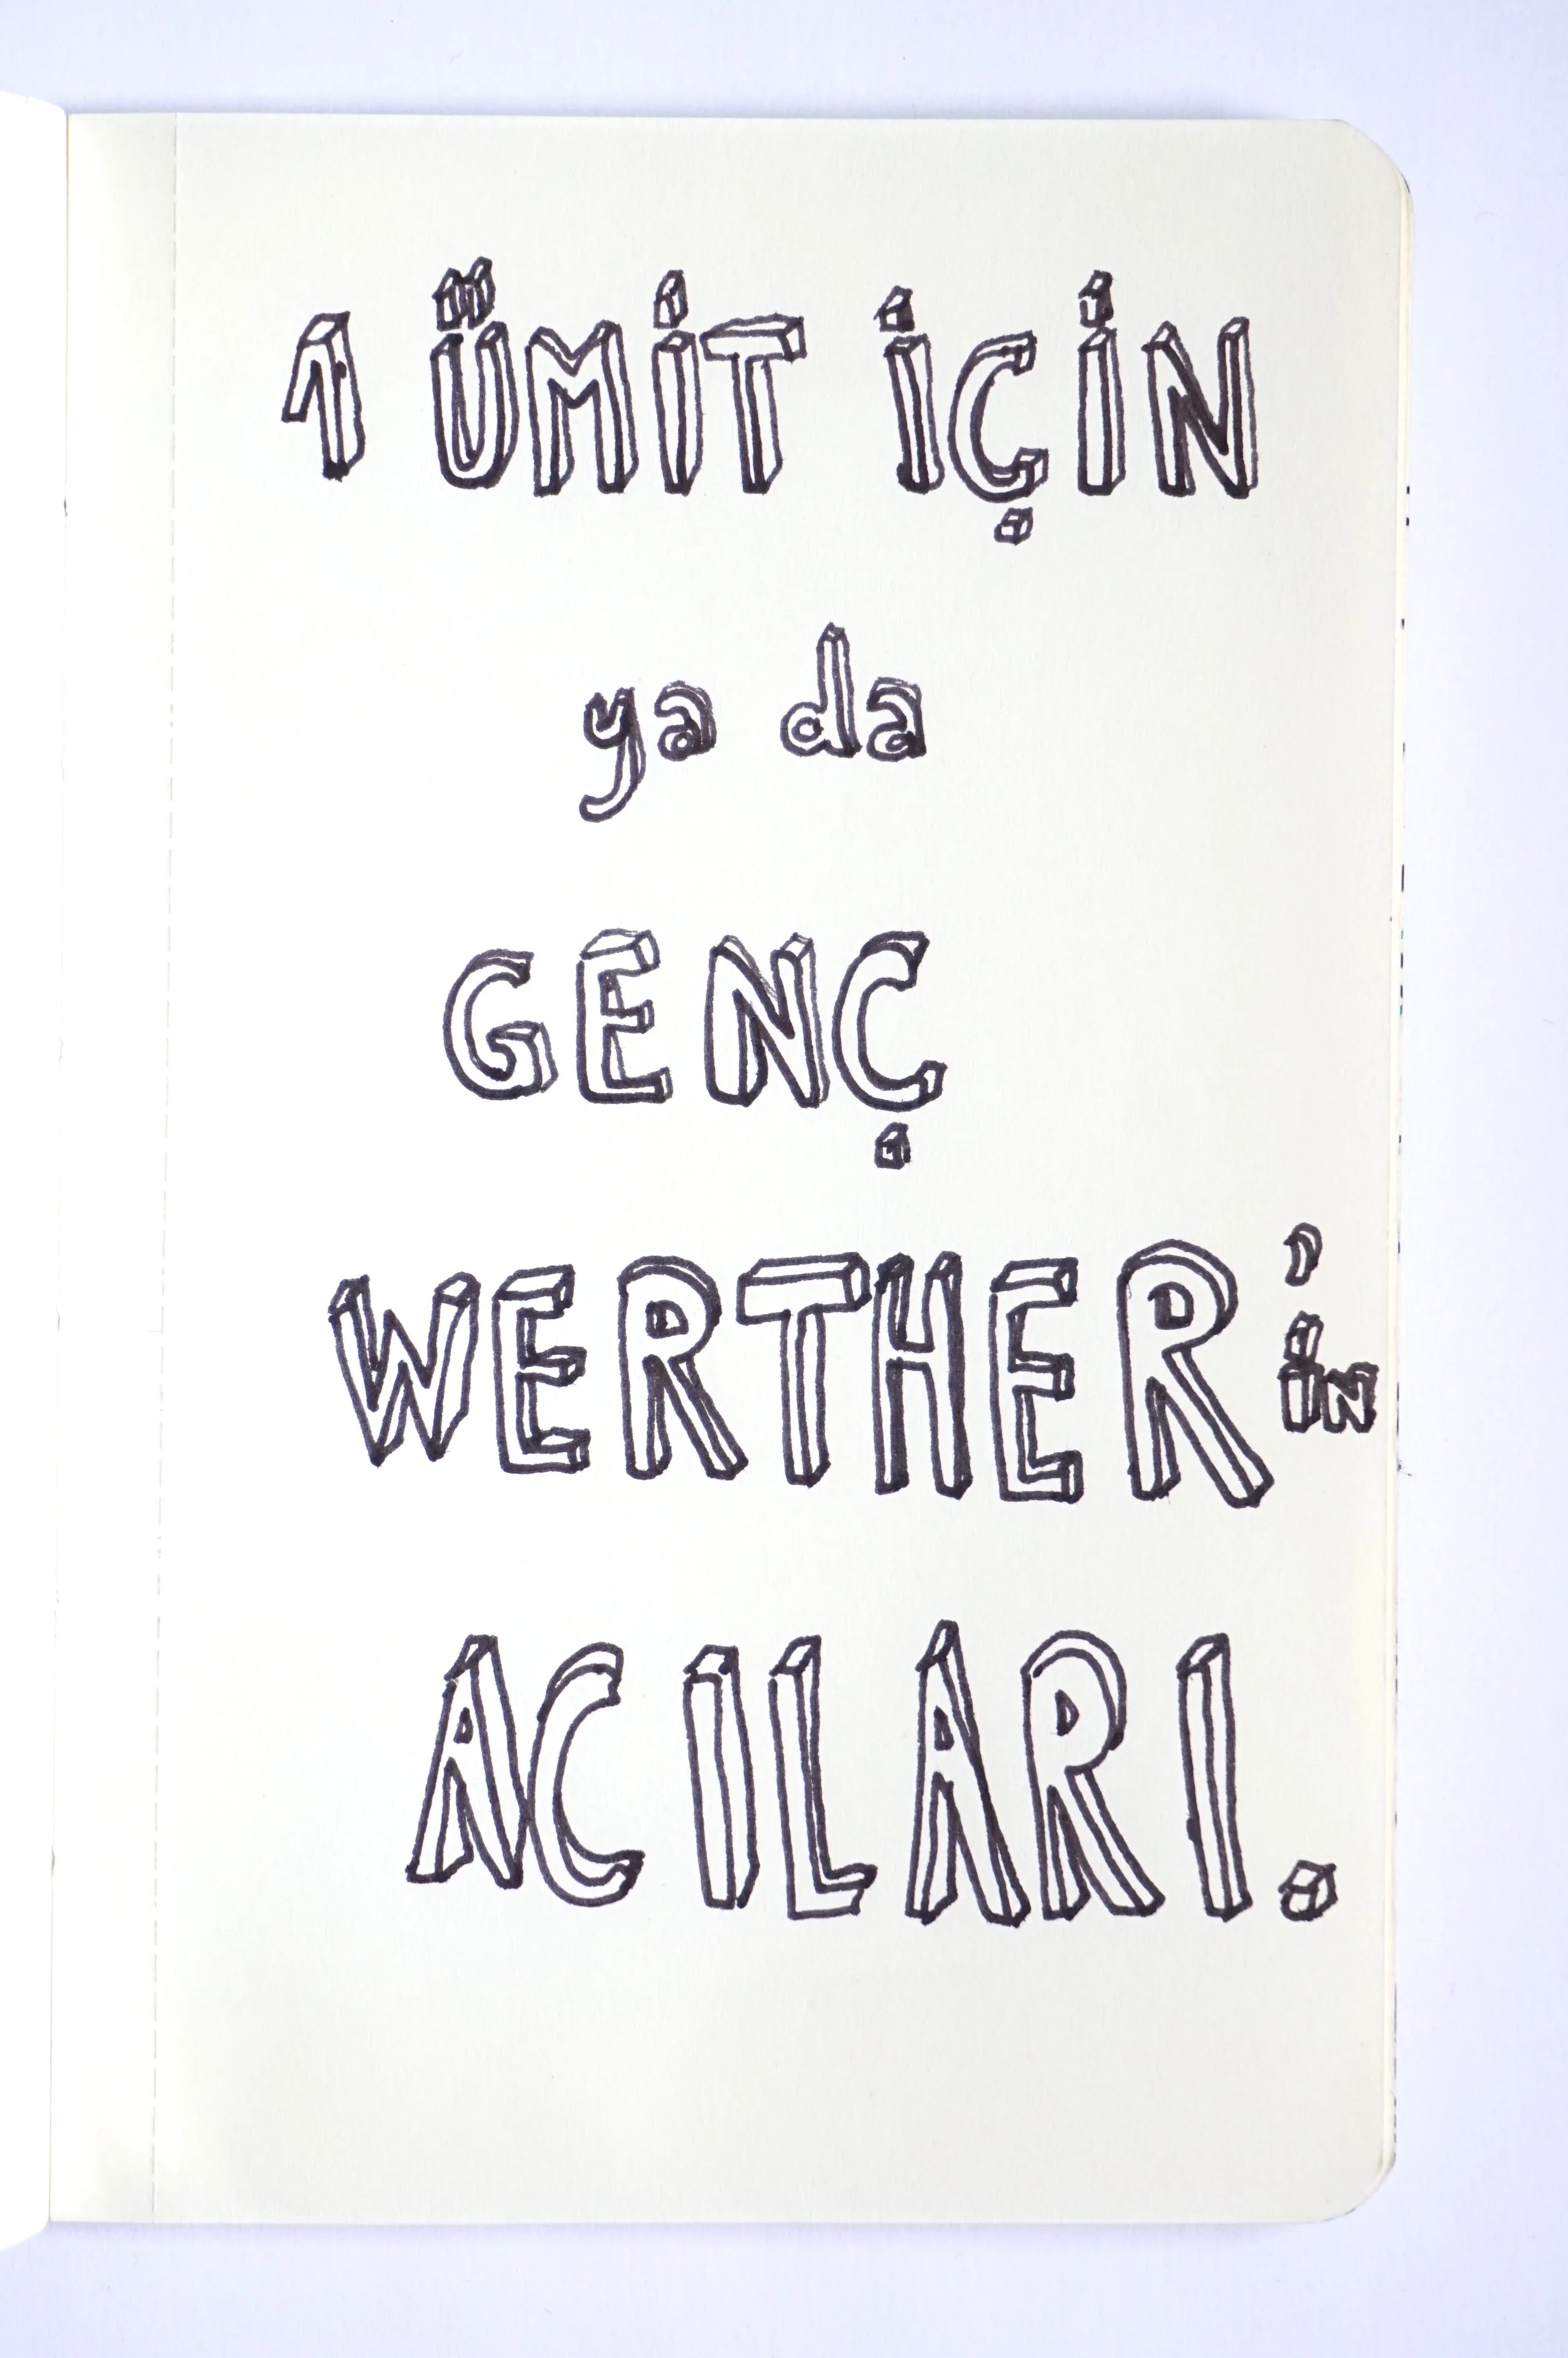 1 ÜMİT İÇİN
ya da
GENÇ
WERTHER'in
ACILARI.